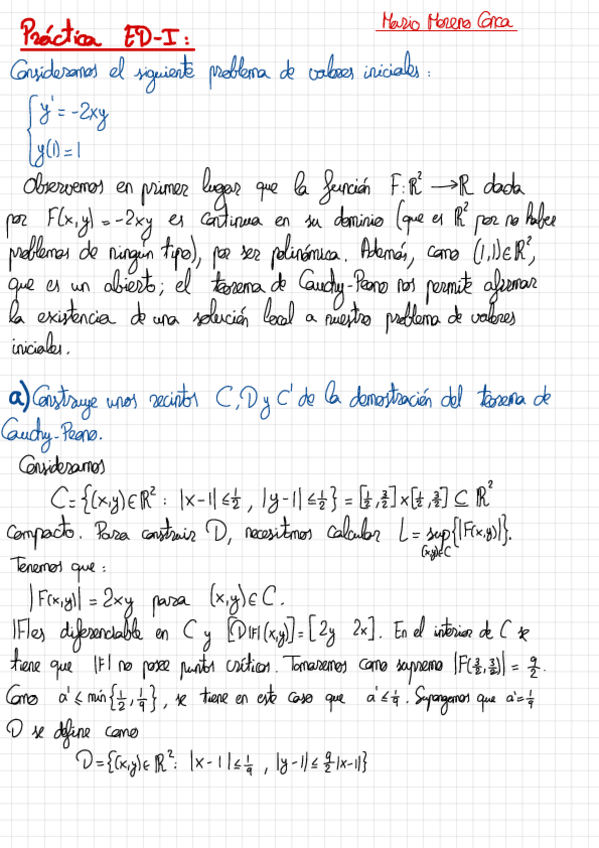 Práctica ED-I:
Mario Moreno Corca
Consideramos el siguiente problema de valores iniciales:
{ y' = -2xy
y(1) = 1
Observemos en primer lugar que la función F: ℝ² → ℝ dada
por F(x,y) = -2xy es continua en su dominio (que es ℝ² por no haber
problemas de ningún tipo), por ser polinómica. Además, como (1,1) ∈ ℝ²,
que es un abierto; el teorema de Cauchy-Peano nos permite afirmar
la existencia de una solución local a nuestro problema de valores
iniciales.
a) Construye unos recintos C, D y C' de la demostración del teorema de
Cauchy-Peano.
Consideramos
C = {(x,y) ∈ ℝ² : |x-1| ≤ 1/2 , |y-1| ≤ 1/2} = [1/2, 3/2] x [1/2, 3/2] ⊆ ℝ²
compacto. Para construir D, necesitmos calcular L = sup{|F(x,y)|}.
(x,y)∈C
Tenemos que:
|F(x,y)| = 2xy para (x,y) ∈ C.
|F| es diferenciable en C y [D|F|(x,y)] = [2y 2x]. En el interior de C se
tiene que |F| no posee puntos críticos. Tomaremos como supremo |F(3/2, 3/2)| = 9/2.
Como a' ≤ min{1/2, 1/9}, se tiene en este caso que a' ≤ 1/9. Supongamos que a' = 1/9
D se define como
D = {(x,y) ∈ ℝ² : |x-1| ≤ 1/9 , |y-1| ≤ 9/2 |x-1|}